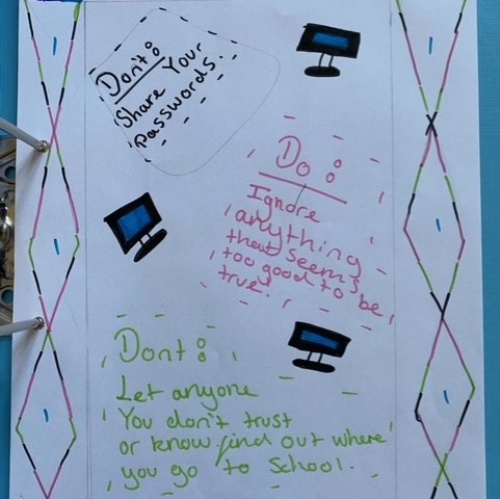 Don't:
Share Your
passwords.
Do:
Ignore
anything
that seems
too good to be
true!
Dont:
Let anyone
You don't trust
or know find out where
you go to School.